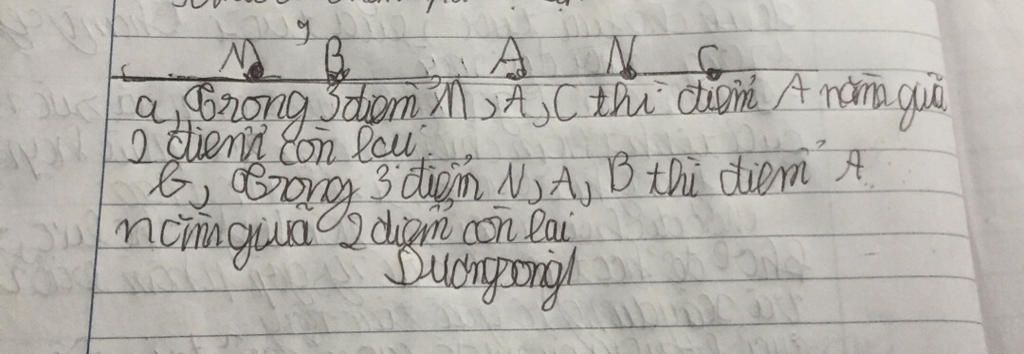 M B A N C
a, Trong 3 điểm M, A, C thì điểm A nằm giữa
2 điểm còn lại.
b, Trong 3 điểm N, A, B thì điểm A
nằm giữa 2 điểm còn lại